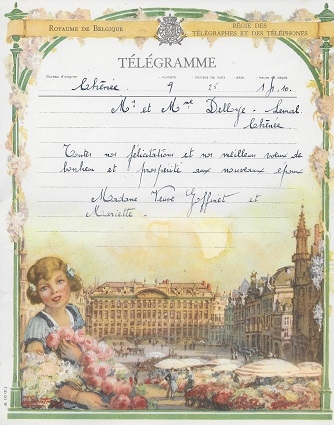 ROYAUME DE BELGIQUE
RÉGIE DES
TÉLÉGRAPHES ET DES TÉLÉPHONES
TÉLÉGRAMME
Bureau d'origine numéro nombre de mots date heure de dépôt
Chênée 9 25 10
Mr et Mme Delloye - Lenal
Chênée
Toutes nos félicitations et nos meilleurs vœux de
bonheur et prospérité aux nouveaux époux
Madame Veuve Goffinet et
Mariette